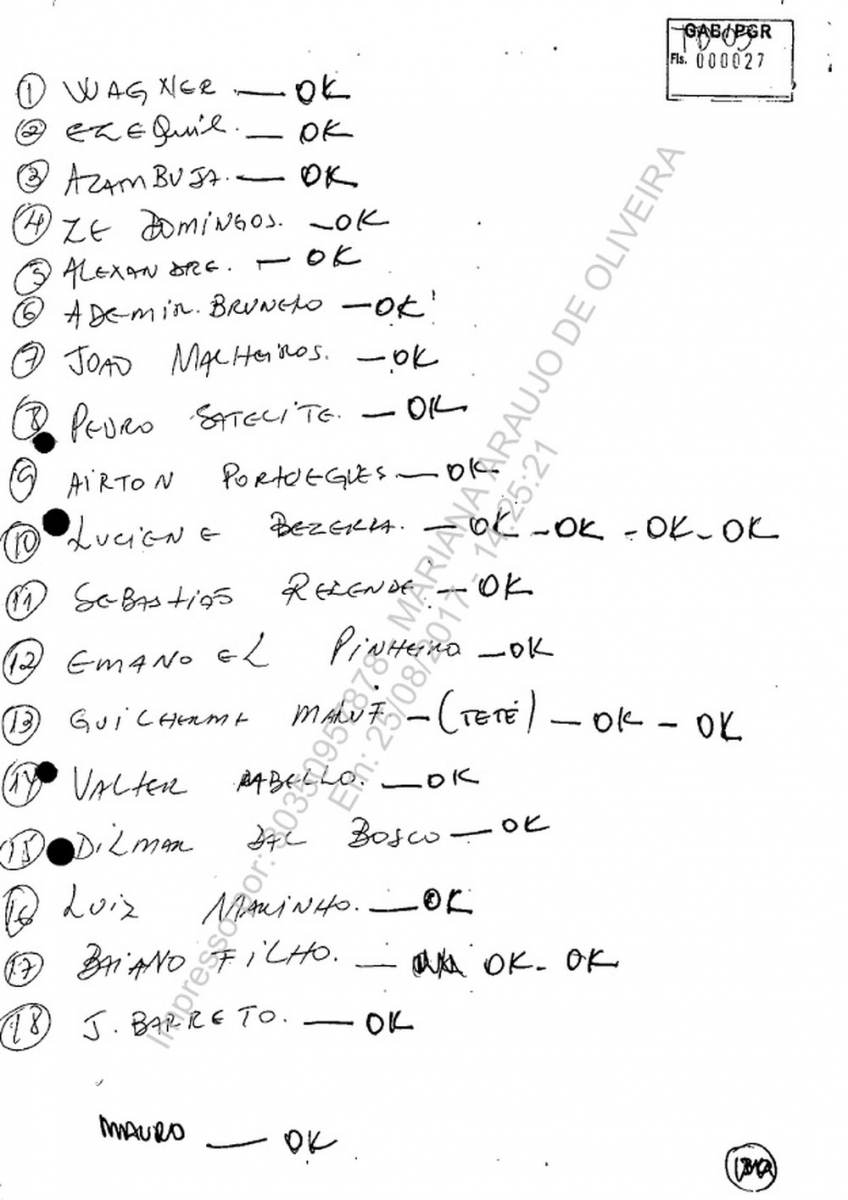 GAB/PGR
Fls. 000027
1 WAGNER — OK
2 EZEQUIEL. — OK
3 AZAMBUJA. — OK
4 ZE DOMINGOS. — OK
5 ALEXANDRE. — OK
6 ADEMIR. BRUNETO — OK
7 JOAO MALHEIROS. — OK
8 PEDRO SATELITE. — OK
9 AIRTON PORTUGUES — OK
10 LUCIENE BEZERRA. — OK - OK - OK - OK
11 SEBASTIAO REZENDE — OK
12 EMANOEL PINHEIRO — OK
13 GUILHERME MALUF — (TETÉ) — OK — OK
14 VALTER RABELLO. — OK
15 DILMAR DAL BOSCO — OK
16 LUIZ MARINHO. — OK
17 BAIANO FILHO. — OK - OK
18 J. BARRETO. — OK
MAURO — OK
Impresso por: MARIANA ARAUJO DE OLIVEIRA
Em: 25/08/2017 - 14:25:21